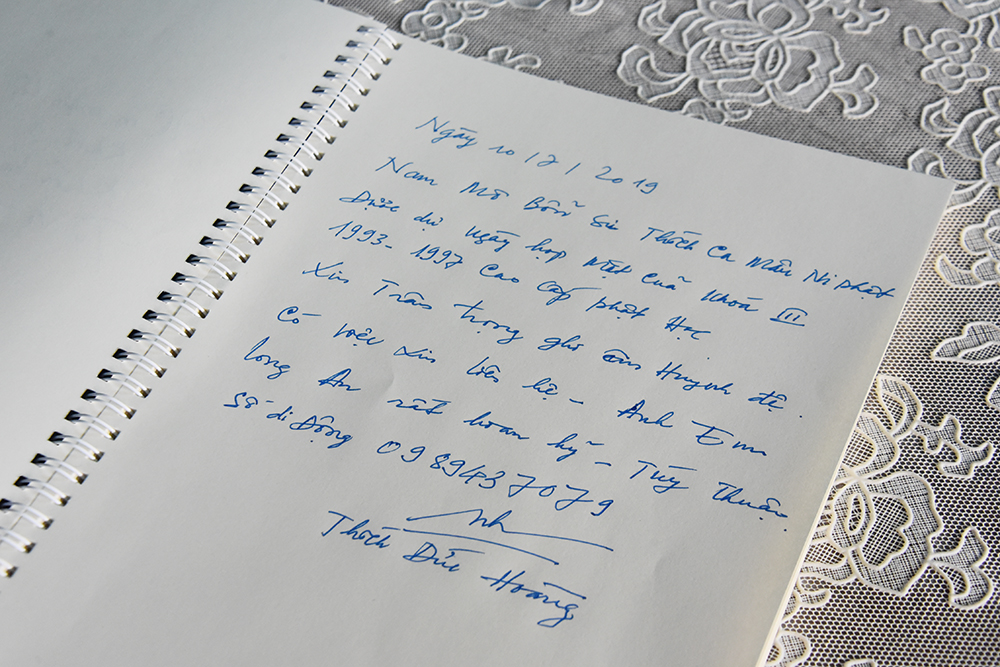 Ngày 10/7/2019
Nam Mô Bổn Sư Thích Ca Mâu Ni phật
Được dự ngày họp mặt của khoá III
1993-1997 Cao Cấp phật Học.
Xin Trân trọng ghi ân Huynh đệ.
Có việc xin liên hệ - Anh Em
long An rất hoan hỹ - Tùy Thuận.
Số di Động 0989437079
Thích Đức Hoàng